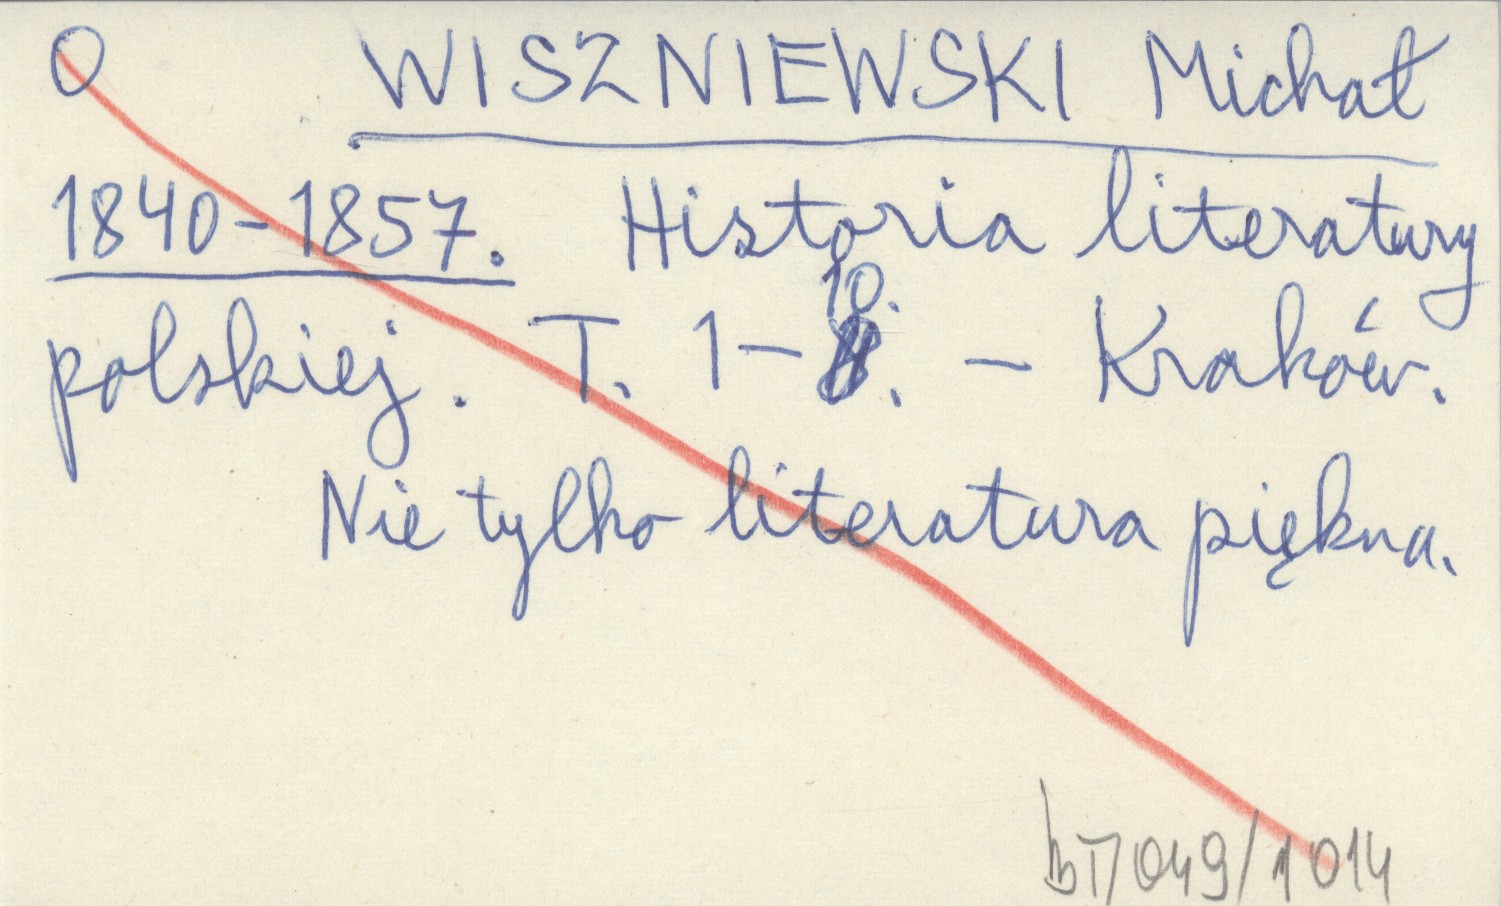 O WISZNIEWSKI Michał
1840-1857. Historia literatury
10.
polskiej. T. 1-8. - Kraków.
Nie tylko literatura piękna.
049/1014